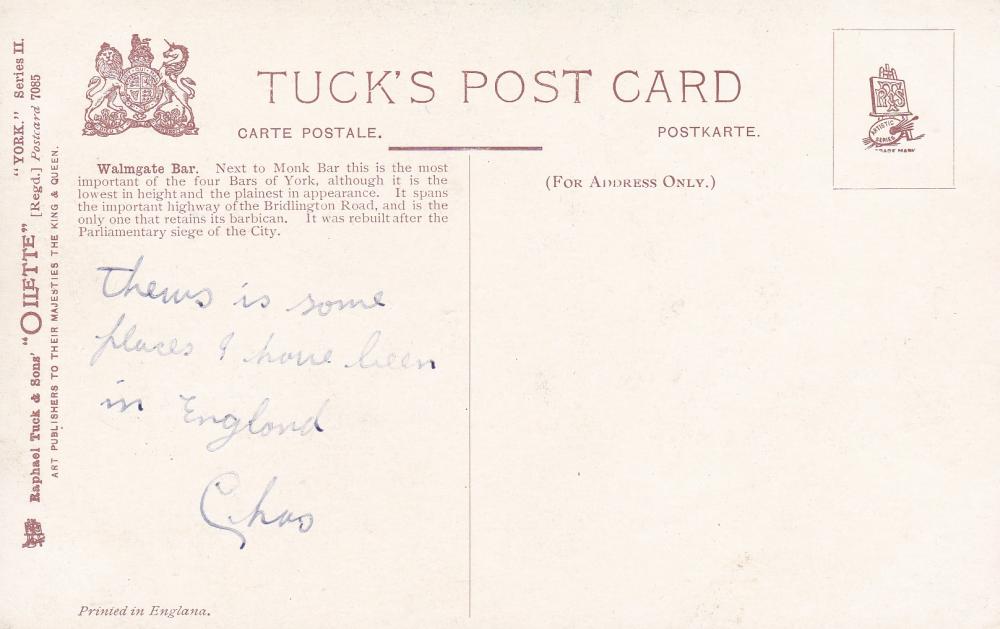 "YORK." Series II.
Raphael Tuck & Sons' "OILETTE" [Regd.] Postcard 7085
ART PUBLISHERS TO THEIR MAJESTIES THE KING & QUEEN.
TUCK'S POST CARD
CARTE POSTALE.
POSTKARTE.
Walmgate Bar. Next to Monk Bar this is the most
important of the four Bars of York, although it is the
lowest in height and the plainest in appearance. It spans
the important highway of the Bridlington Road, and is the
only one that retains its barbican. It was rebuilt after the
Parliamentary siege of the City.
(FOR ADDRESS ONLY.)
ARTISTIC
SERIES
TRADE MARK
thews is some
places I have been
in England
Chas
Printed in England.